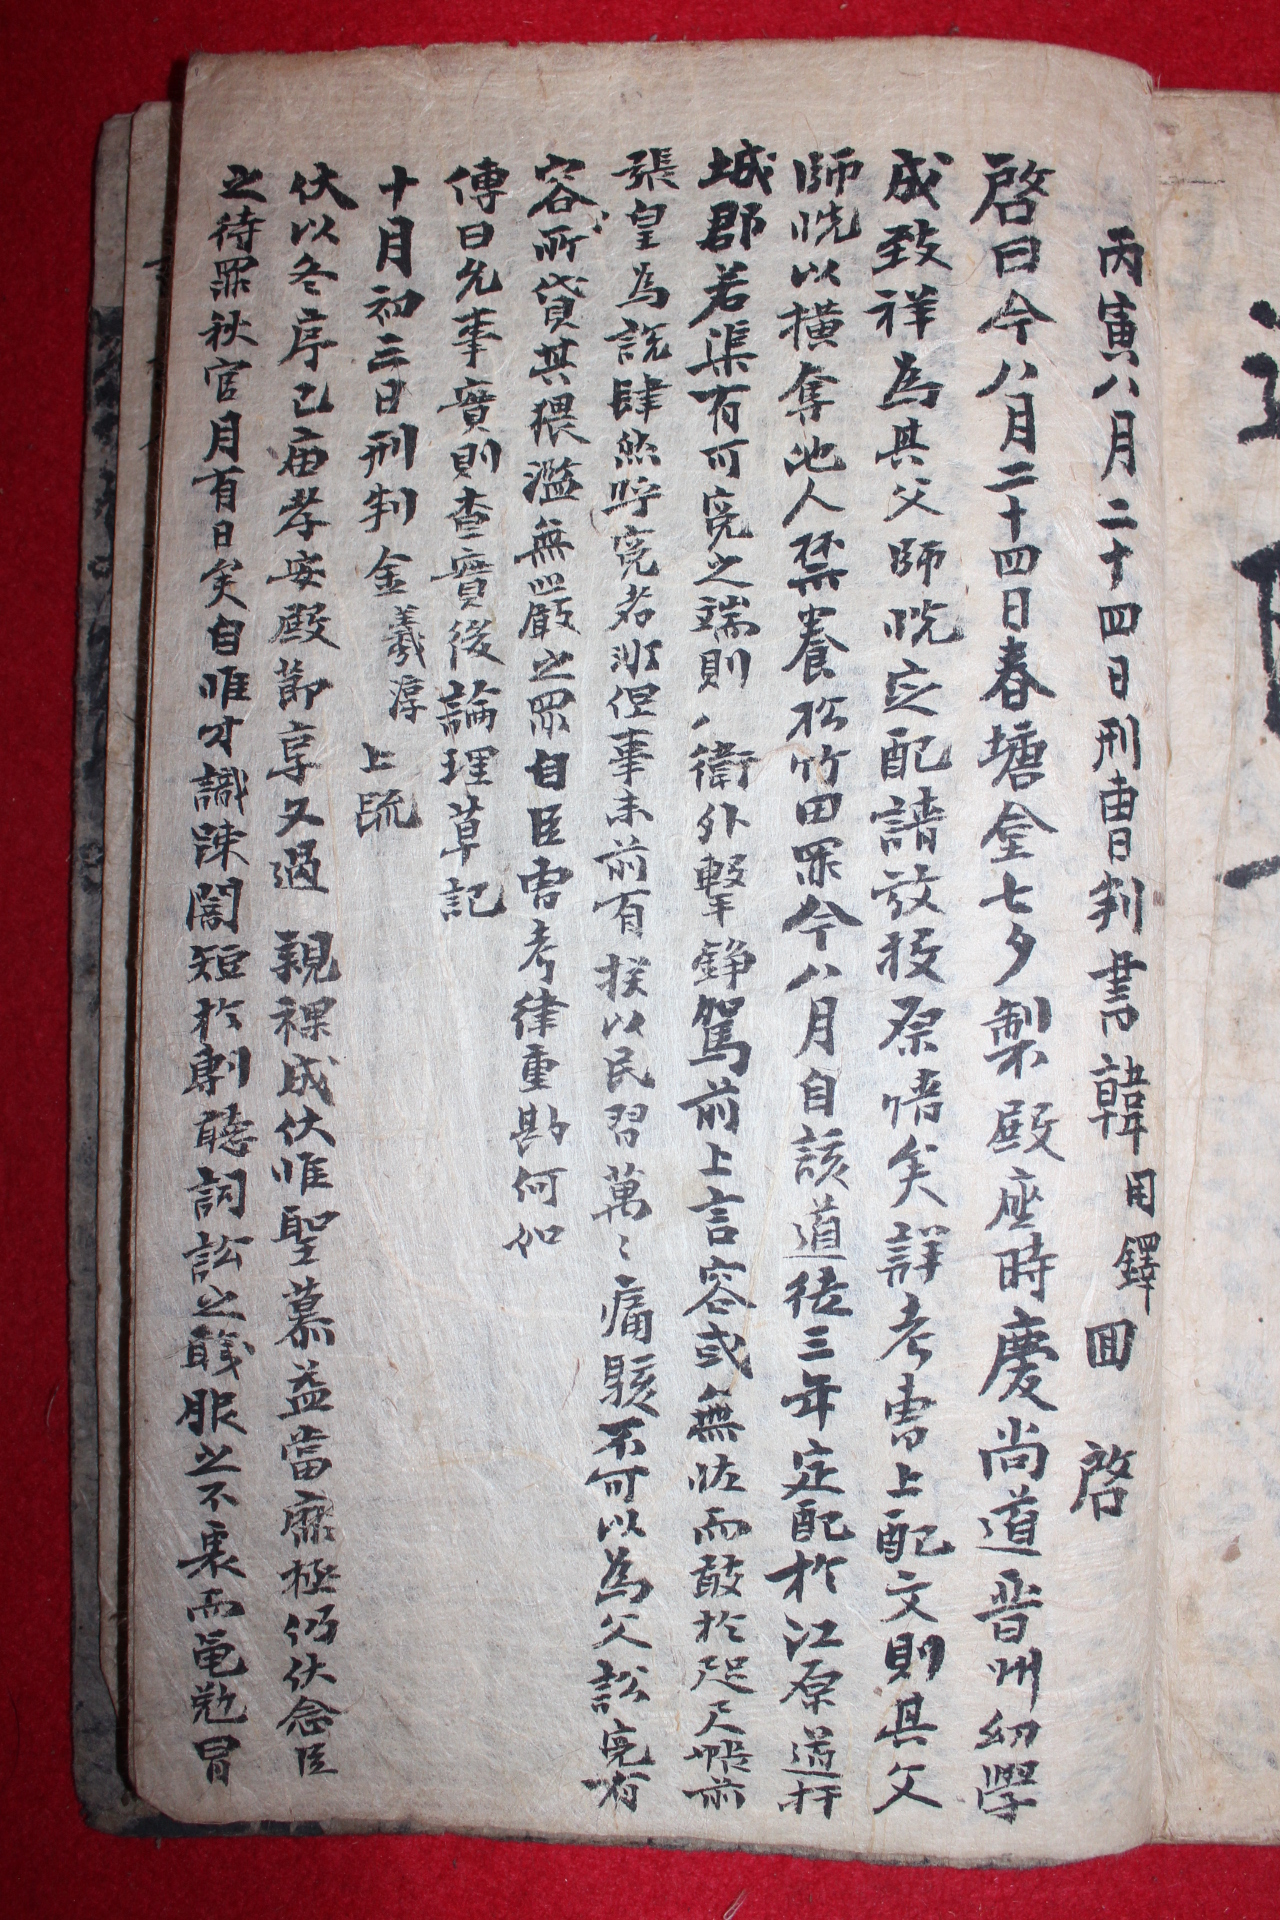 丙寅八月二十四日刑曹判書韓用鐸回 啓
啓曰今八月二十四日春塘坮七夕製殿座時慶尚道晋州幼學
成致祥為其父師晄定配請放投原情矣詳考曹上配文則其父
師晄以橫奪他人禁養松竹田罪今八月自該道徒三年定配於江原道杆
城郡若渠有可寃之端則八衛外擊錚駕前上言容或無怪而敢於咫尺帳前
張皇為說肆然呼寃者非但事未前有揆以民習萬〻痛駭不可以為父訟寃有
容所貸其猥濫無嚴之罪自臣曹考律重勘何如
傳曰允事實則查實後論理草記
十月初三日刑判金羲淳 上疏
伏以冬序已届孝安殿節享又過 親祼成伏惟聖慕益當靡極仍伏念臣
之待罪秋官月有日矣自惟才識踈闇短於剸聽詞訟之職服之不衷而黽勉冒